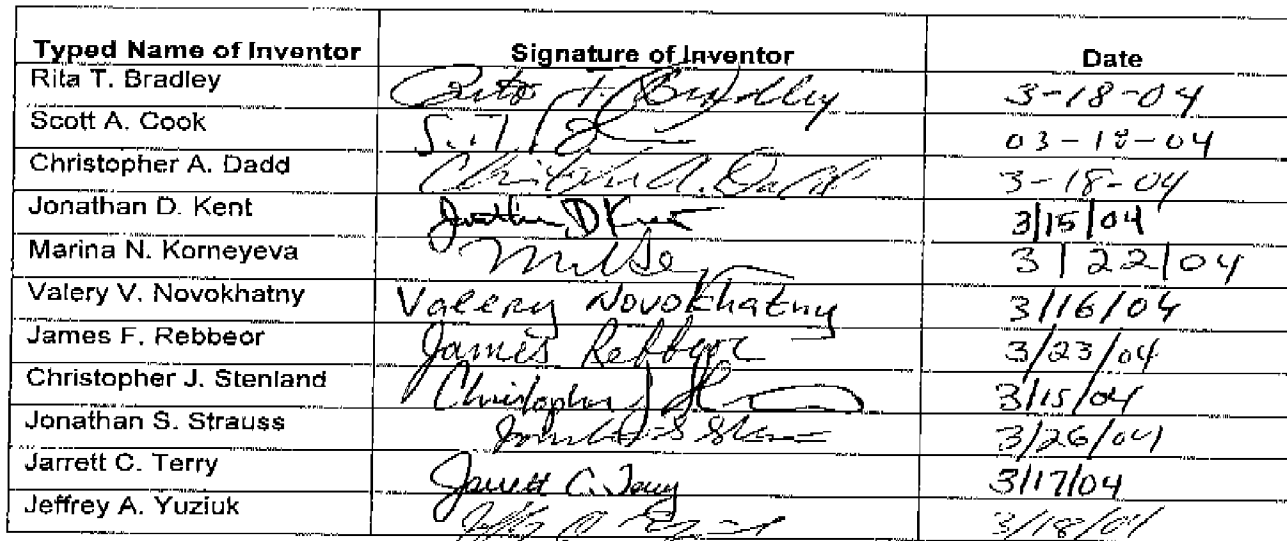 Typed Name of Inventor Signature of Inventor Date
Rita T. Bradley Rita T. Bradley 3-18-04
Scott A. Cook 03-18-04
Christopher A. Dadd Christopher A. Dadd 3-18-04
Jonathan D. Kent Jonathan D Kent 3/15/04
Marina N. Korneyeva 3/22/04
Valery V. Novokhatny Valery Novokhatny 3/16/04
James F. Rebbeor James Rebbeor 3/23/04
Christopher J. Stenland Christopher J 3/15/04
Jonathan S. Strauss Jonathan S Strauss 3/26/04
Jarrett C. Terry Jarrett C. Terry 3/17/04
Jeffrey A. Yuziuk 3/18/04